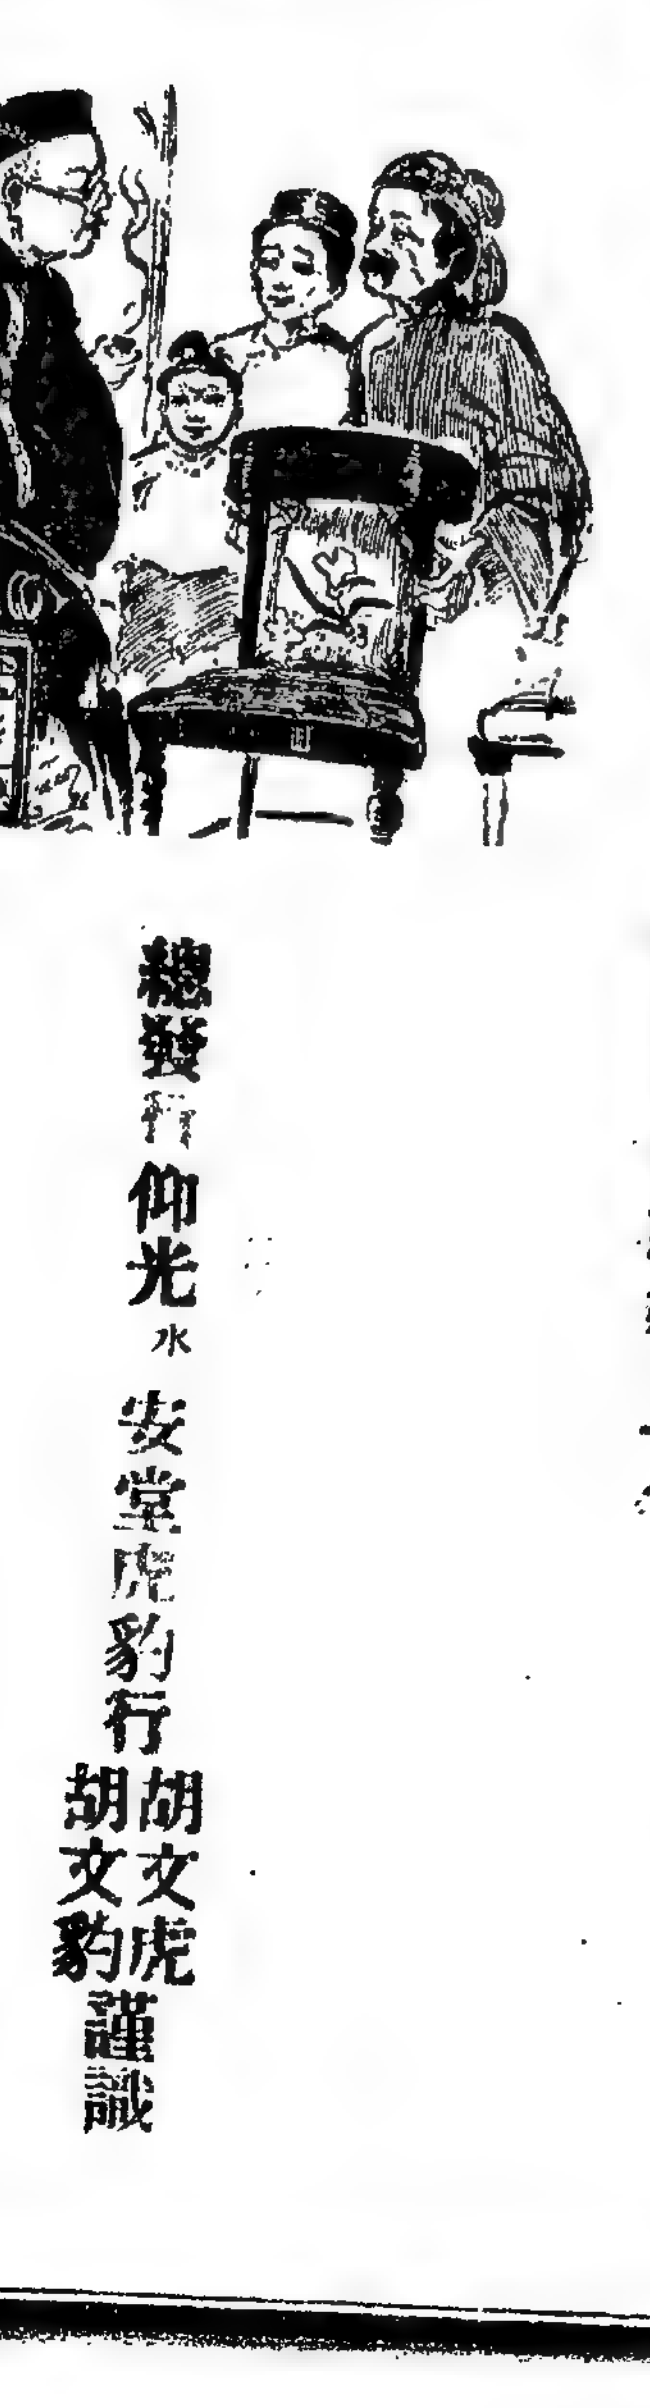 總發行仰光水安堂虎豹行
胡文虎
胡文豹
謹識